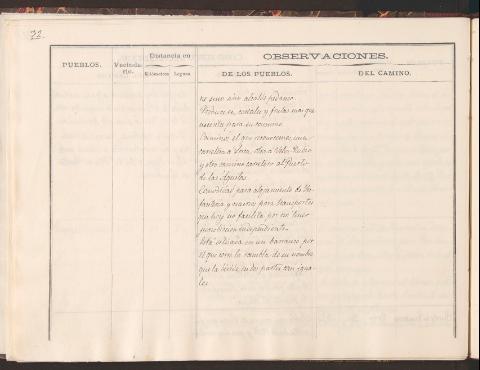 72.
PUEBLOS.
Vecinda-
rio.
Distancia en
Kilómetros
Leguas
OBSERVACIONES.
DE LOS PUEBLOS.
DEL CAMINO.
es sino un alcalde pedaneo.
Produce cereales y frutas mas que
para su consumo
Caminos el que recorremos, una
carretera á Lorca, otra á Velez Rubio
y otro camino carretero al Puerto
de las Aguilas
Comodidad para alojamiento de In-
fanteria y para transportes
que hoy no facilita por no tener
jurisdiccion independiente.
Está situada en un barranco por
el que corre la rambla de su nombre
que la divide en dos partes casi igua-
les